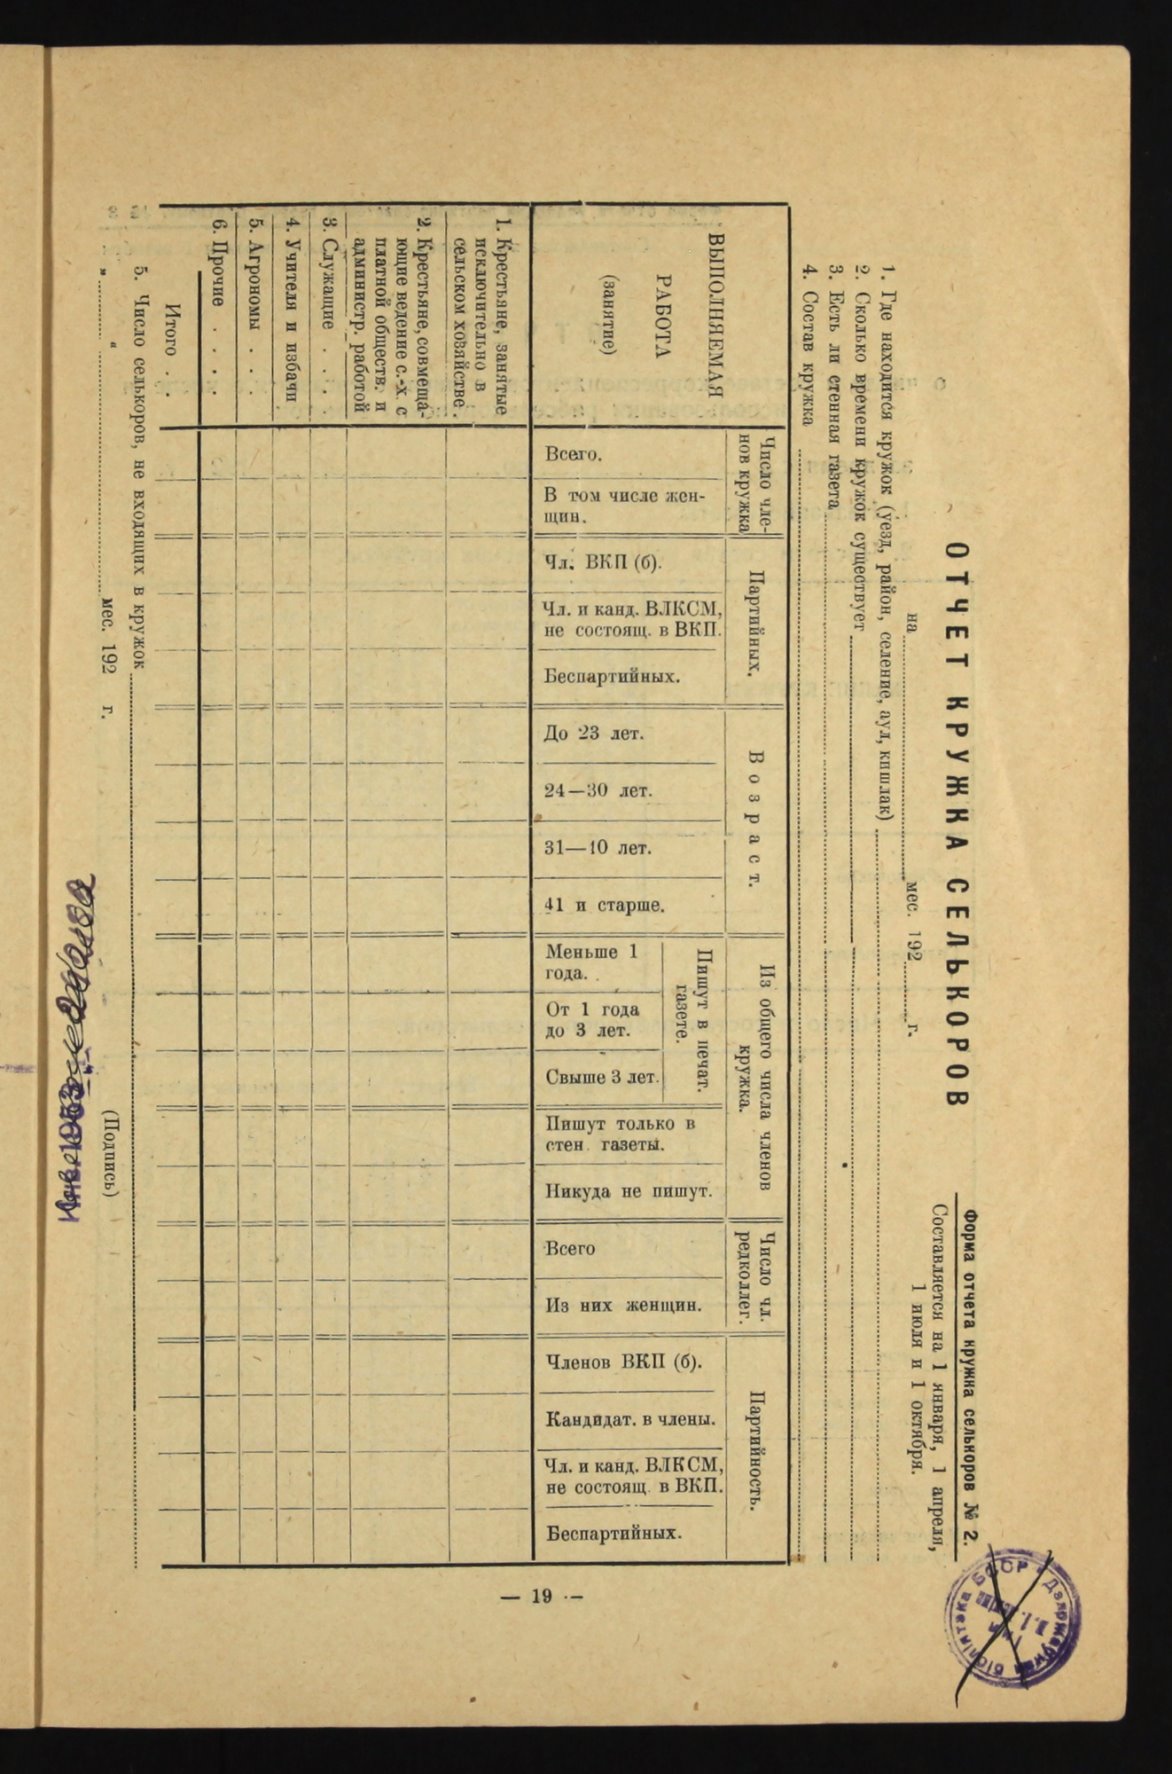 Форма отчета кружка селькоров № 2.
Составляется на 1 января, 1 апреля,
1 июля и 1 октября.
ОТЧЕТ КРУЖКА СЕЛЬКОРОВ
на мес. 192 г.
1. Где находится кружок (уезд, район, селение, аул, кишлак)
2. Сколько времени кружок существует
3. Есть ли стенная газета
4. Состав кружка
ВЫПОЛНЯЕМАЯ
РАБОТА
(занятие)
Число чле-
нов кружка
Всего.
В том числе жен-
щин.
Партийных.
Чл. ВКП (б).
Чл. и канд. ВЛКСМ,
не состоящ. в ВКП.
Беспартийных.
Возраст.
До 23 лет.
24—30 лет.
31—40 лет.
41 и старше.
Из общего числа членов
кружка.
Пишут в печат.
газете.
Меньше 1
года.
От 1 года
до 3 лет.
Свыше 3 лет.
Пишут только в
стен. газеты.
Никуда не пишут.
Число чл.
редколлег.
Всего
Из них женщин.
Партийность.
Членов ВКП (б).
Кандидат. в члены.
Чл. и канд. ВЛКСМ,
не состоящ. в ВКП.
Беспартийных.
1. Крестьяне, занятые
исключительно в
сельском хозяйстве.
2. Крестьяне, совмеща-
ющие ведение с.-х. с
платной обществ. и
администр. работой
3. Служащие . . .
4. Учителя и избачи
5. Агрономы . . .
6. Прочие . . . .
Итого . .
5. Число селькоров, не входящих в кружок
" " мес. 192 г.
(Подпись)
— 19 —
Дзяржаўная бібліятэка БССР